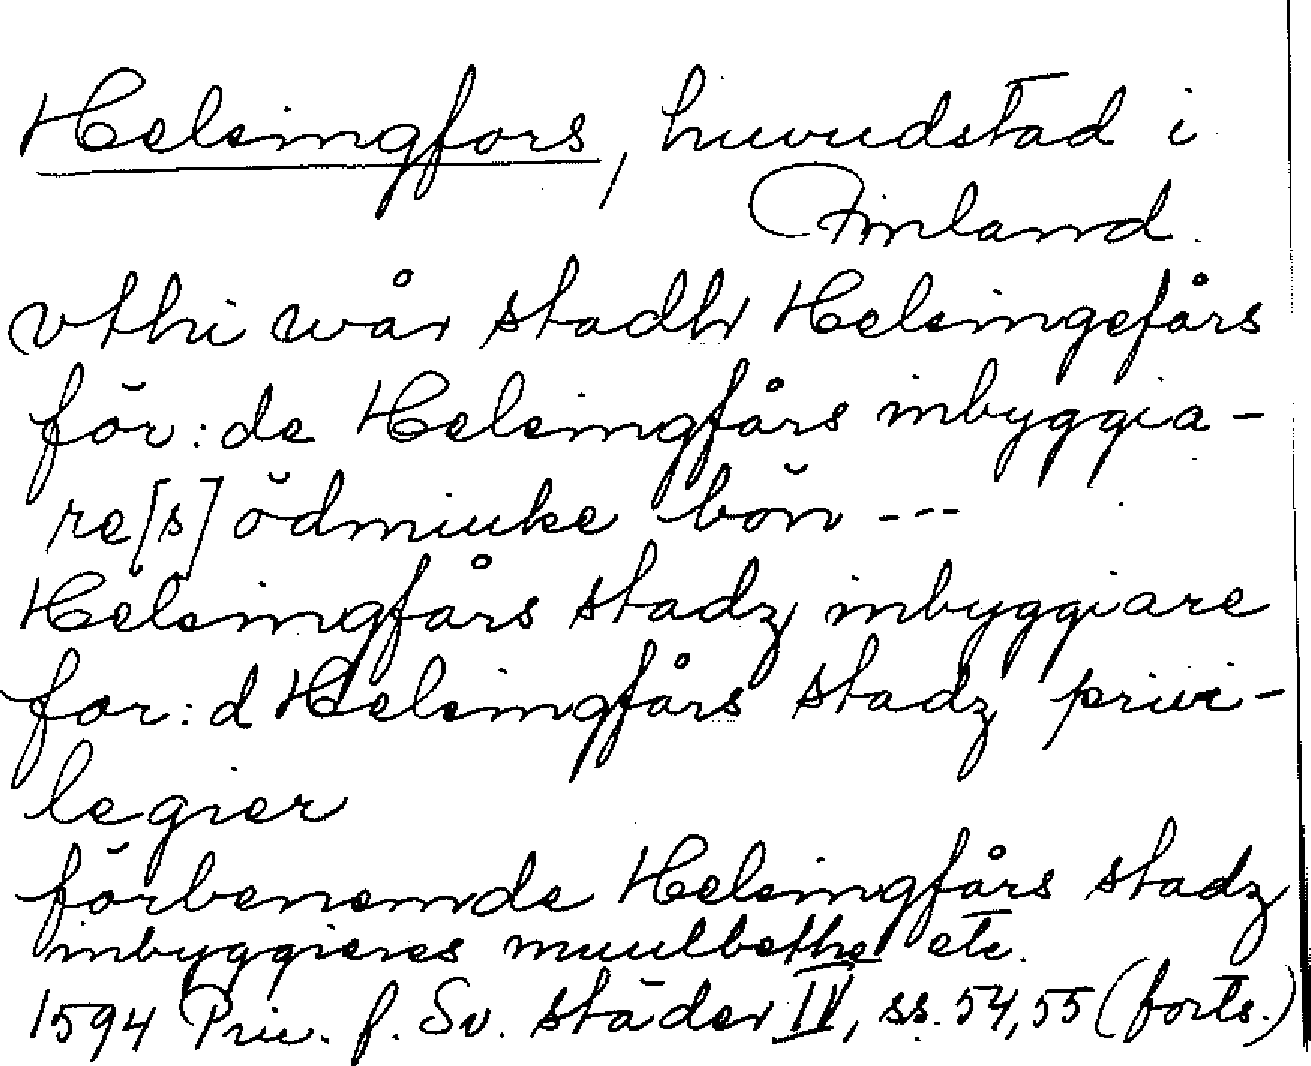 Helsingfors, huvudstad i
Finland.
vthi wår stadh Helsingefårs
för:de Helsingfårs inbyggia-
re[s] ödmiuke bön ---
Helsingfårs stadz inbyggiare
for:d Helsingfårs stadz privi-
legier
förbenemde Helsingfårs stadz
inbyggieres muulbethe etc.
1594 Priv. f. Sv. städer IV, ss. 54, 55 (forts.)